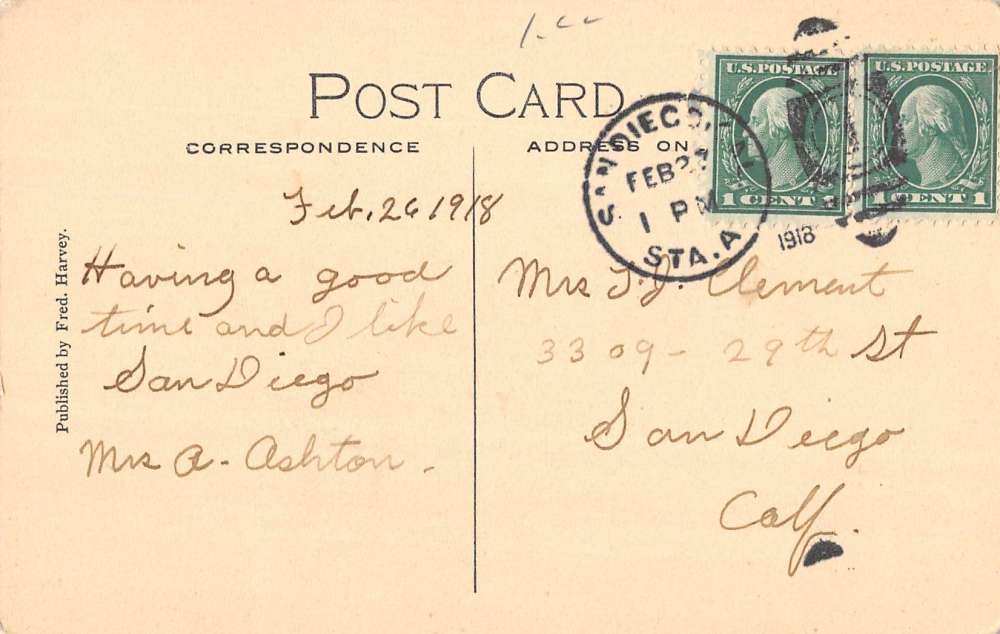 1.00
POST CARD
CORRESPONDENCE
ADDRESS ON
SAN DIEGO, CAL.
FEB
1 PM
STA. A
1918
U.S. POSTAGE
1 CENT 1
U.S. POSTAGE
1 CENT 1
Feb. 26 1918
Having a good
time and I like
San Diego
Mrs A. Ashton.
Mrs T. J. Clement
3309 - 29th St
San Diego
Calf.
Published by Fred. Harvey.